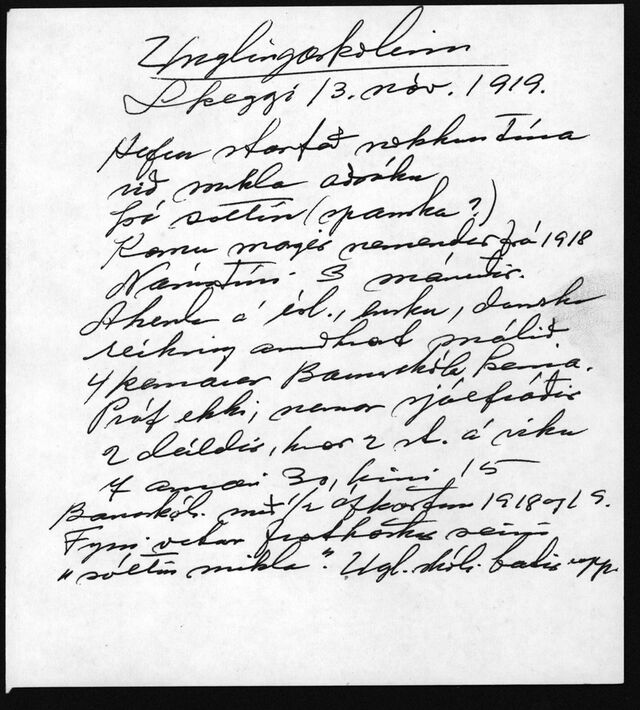 Unglingaskólinn
Skeggi 13. nóv. 1919.
Hefur starfað nokkurn tíma
við mikla aðsókn
þó sóttin (spanska?)
Komu margir nemendur frá 1918
Námstími 3 mánuðir.
á ísl., ensku, dansku
reikning annað hvort málið
4 kennarar Barnaskóla, kenna.
Próf ekki, nemar sjálfráðir
2 deildir, hvor 2 st. á viku
Í annari 30, hinni 15
Barnskól. með 1/2 afköstum 1918 og 19.
Fyrri vetur frátök
"sóttin mikla". Ugl. skóli. fallis upp.